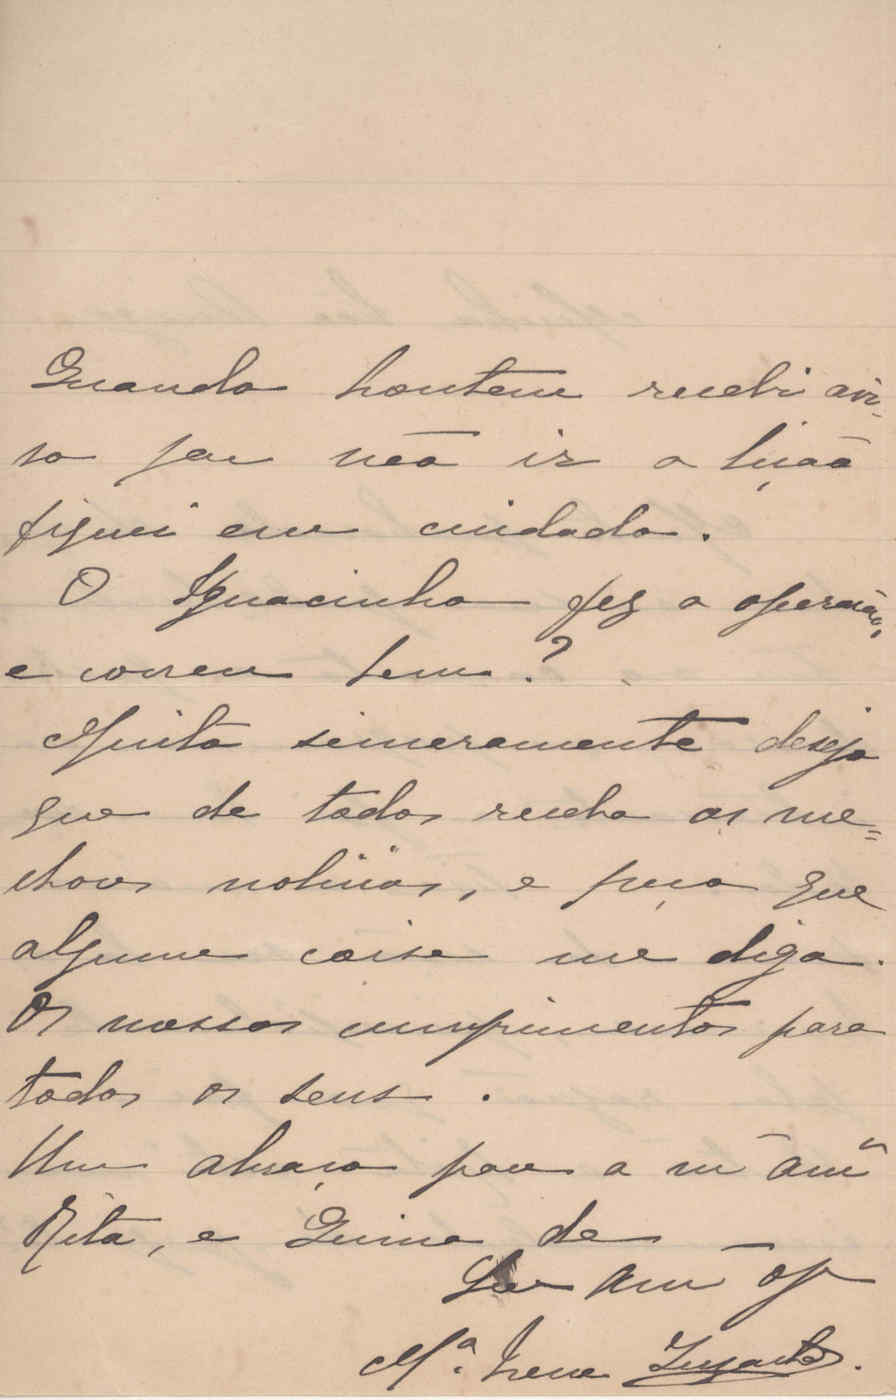 Quando hontem recebi avi-
so por não ir a lição
fiquei em cuidado.
O Ignacinho fez a operação,
e correu bem?
Muito sinceramente desejo
que de todos receba as me=
lhores noticias, e peço que
alguma coisa me diga.
Os nossos cumprimentos para
todos os seus.
Um abraço para a m am^a
Rita, e Quina de
Sua am
M.ª Irene